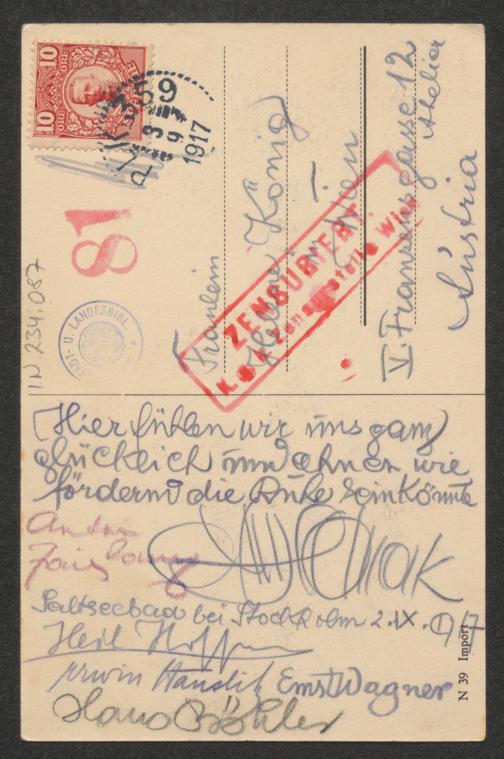 10 10
ÖRE
PLK 359
3 9
1917
81
STADT- U. LANDESBIBL.
IN 234.087
ZENSURIERT
K. u. k. Zensurstelle Wien
Fräulein
König
in
Wien
V. Franzensgasse 12
Atelier
Austria
Hier fühlen wir uns ganz
glücklich und ahnen wie
fördernd die Ruhe sein könnte
Anton
Hanak
Saltseebad bei Stockholm 2.IX.1917
Hoffmann
Erwin Hanslik Ernst Wagner
Hans Böhler
N 39 Import